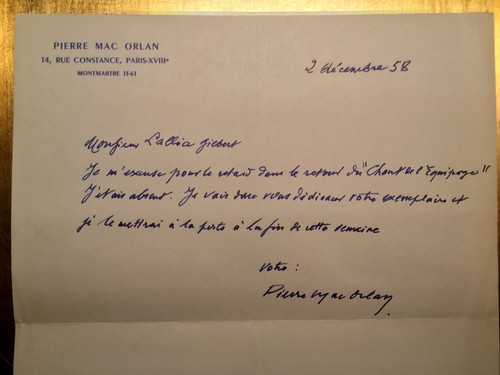 PIERRE MAC ORLAN
14, RUE CONSTANCE, PARIS-XVIIIe
MONTMARTRE 13-61
2 décembre 58
Monsieur Gilbert
Je m'excuse pour le retard dans le retour du "Chant de l'Equipage"
J'étais absent. Je vais donc vous dédicacer votre exemplaire et
je le mettrai à la poste à la fin de cette semaine
Votre :
Pierre Mac Orlan